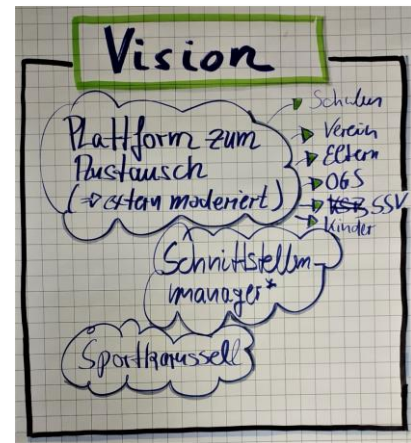 Vision
Plattform zum
Austausch
(→ extern moderiert)
Schulen
Verein
Eltern
OGS
KSB SSV
Kinder
Schnittstellen-
manager*
Sportkarussell